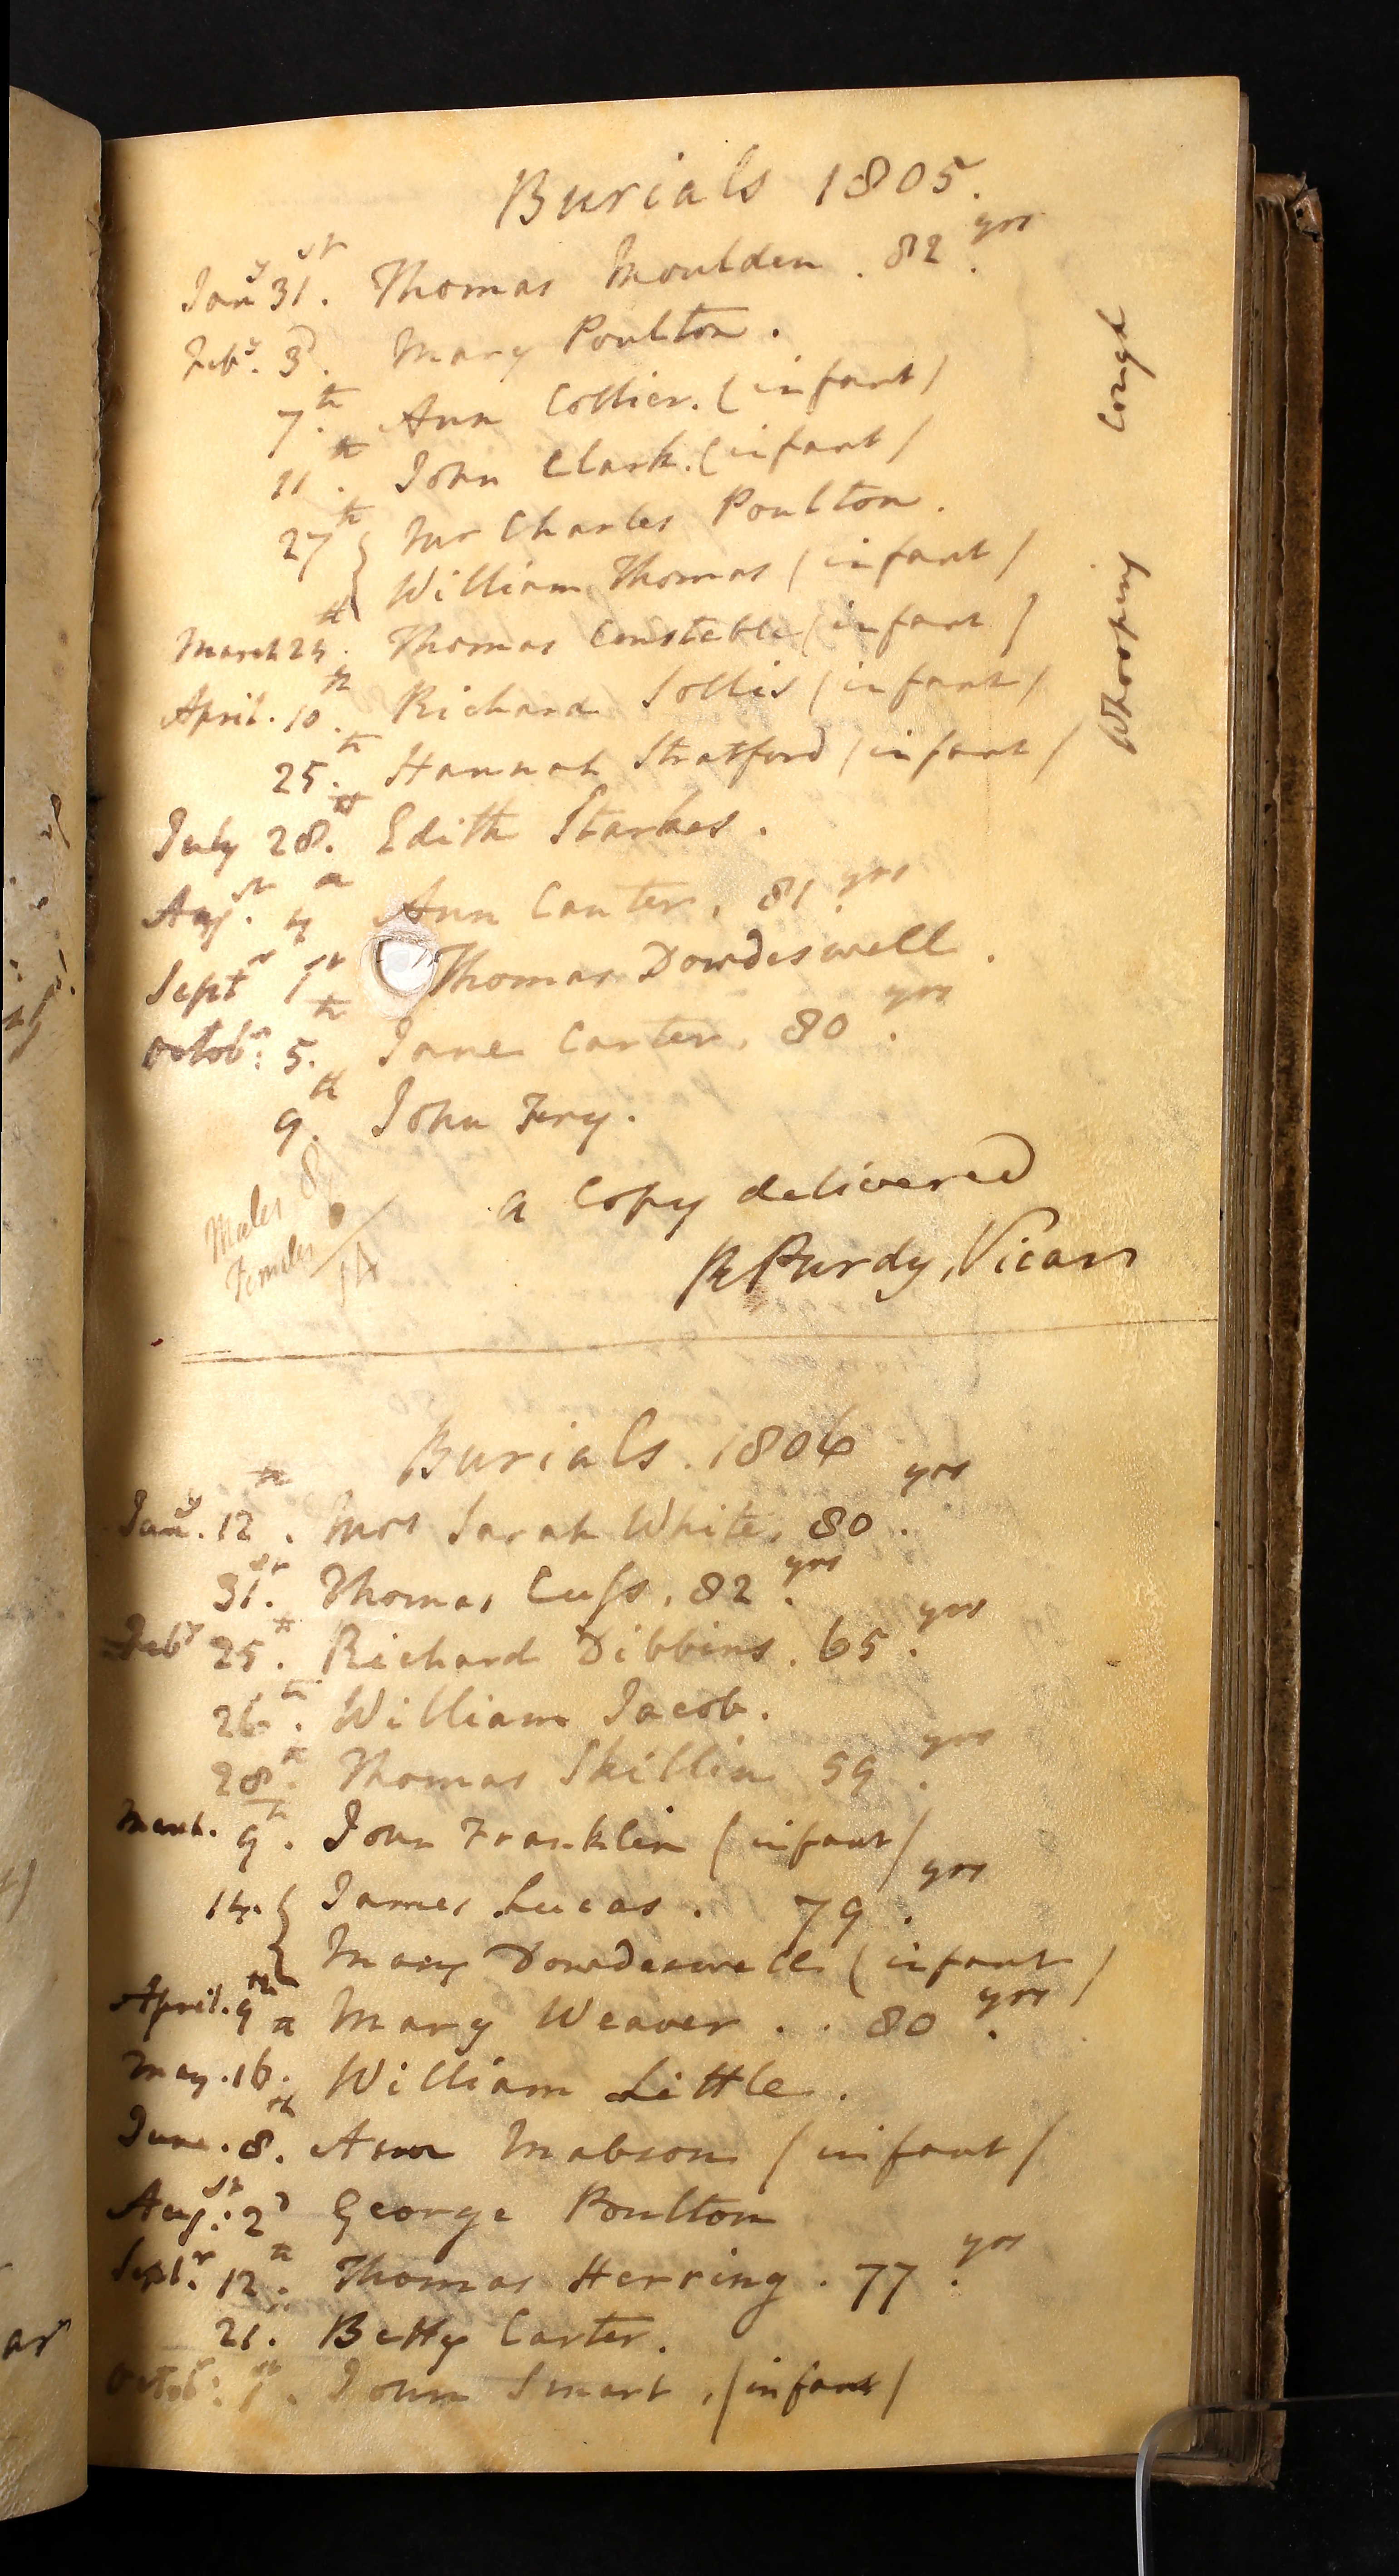 Burials 1805.
Jany 31st. Thomas Moulden. 82 yrs.
Feby. 3d. Mary Poulton.
7th. Ann Collier. (infant)
11th. John Clark. (infant)
27th { Mr Charles Poulton.
William Thomas (infant)
March 24th. Thomas Constable (infant)
April. 10th. Richard Sollis (infant)
25th. Hannah Stratford (infant)
Whooping Cough
July 28th. Edith Starkes.
Augst. 4th Ann Carter, 81 yrs.
Septr 1st Thomas Dowdeswell.
Octobr: 5th. Jane Carter, 80 yrs.
9th. John Fry.
Males 8
Females 6
14
a Copy delivered
R Purdy, Vicar
Burials. 1806
Jany. 12th. Mrs Sarah White, 80 yrs.
31st. Thomas Cuss, 82 yrs.
Feby 25th. Richard Dibbins. 65 yrs.
26th. William Jacob.
28th. Thomas Skillin 59 yrs.
March. 9th. John Franklin (infant)
14. { James Lucas. 79 yrs.
Mary Dowdeswell (infant)
April. 9th Mary Weaver . . 80 yrs.
May. 16th. William Little.
June. 8th. Ann Mabson (infant)
Augst: 2d George Poulton
Septr. 12th. Thomas Herring. 77 yrs.
21. Betty Carter.
Octobr: 1st. John Smart, (infant)